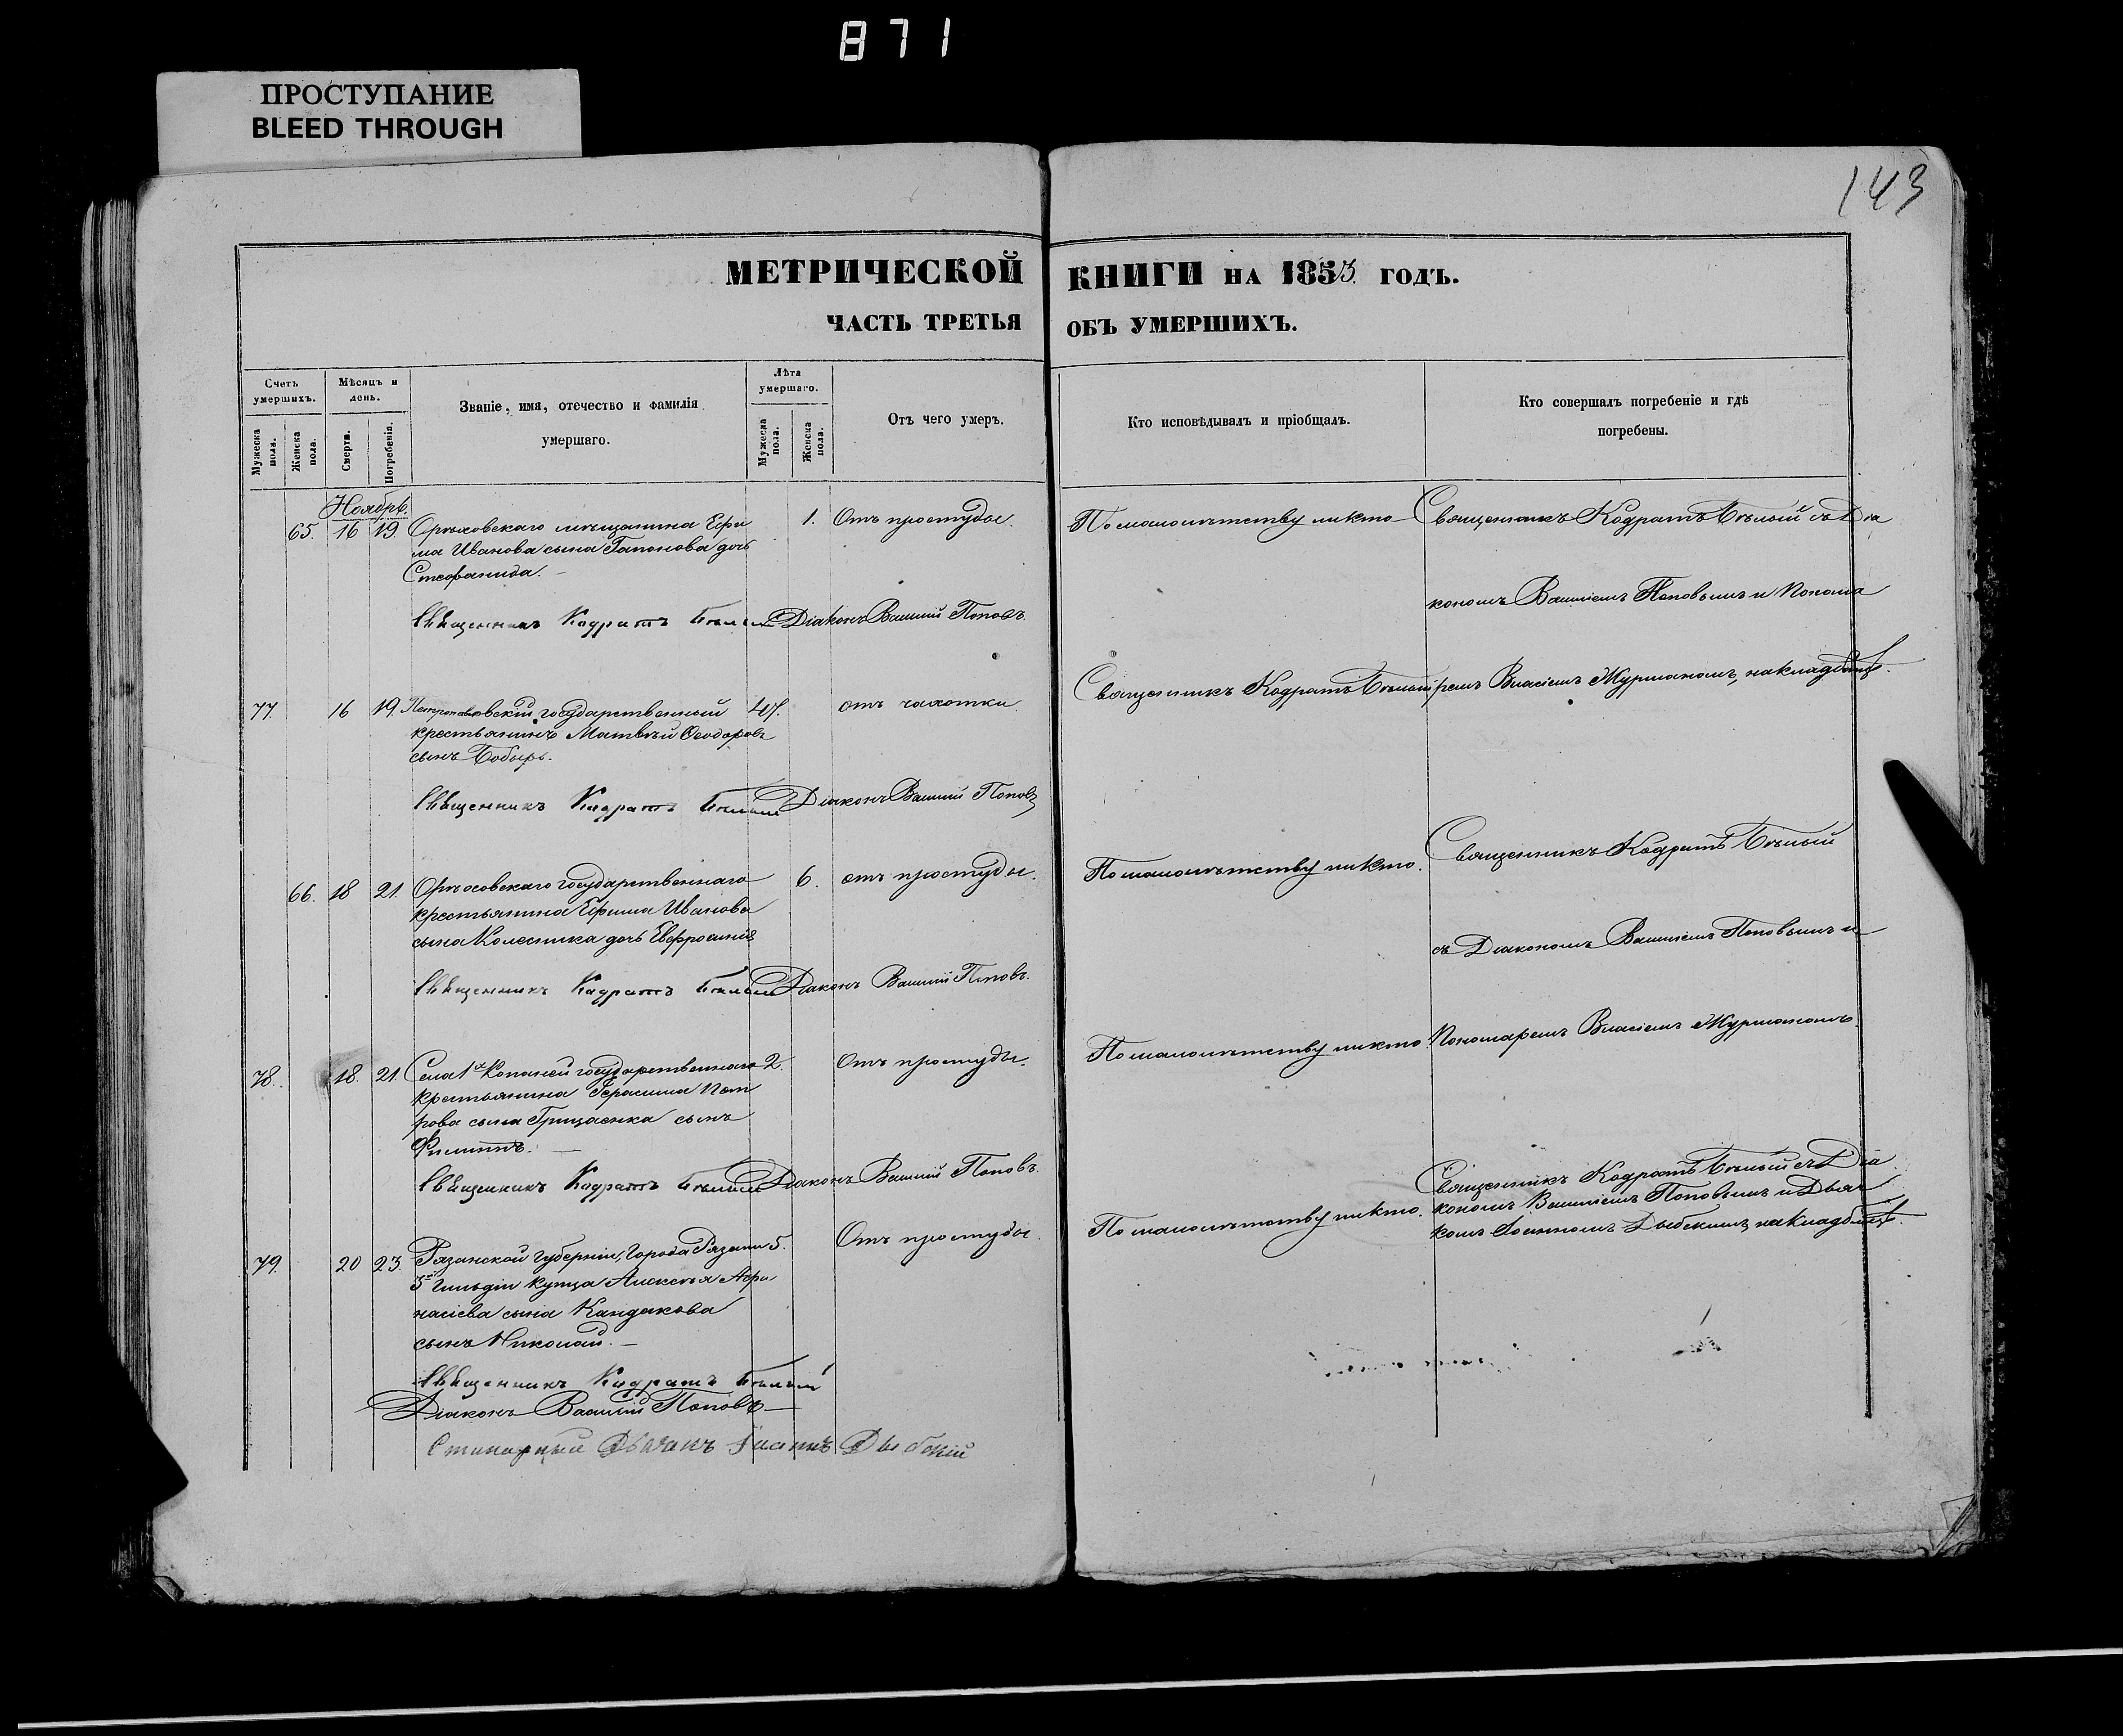 871
ПРОСТУПАНИЕ
BLEED THROUGH
143
МЕТРИЧЕСКОЙ КНИГИ НА 1853 ГОДЪ.
ЧАСТЬ ТРЕТЬЯ ОБЪ УМЕРШИХЪ.
Счетъ умершихъ.
Мужеска пола.
Женска пола.
Мѣсяцъ и день.
Смерти.
Погребенія.
Званіе, имя, отечество и фамилія умершаго.
Лѣта умершаго.
Мужеска пола.
Женска пола.
Отъ чего умеръ.
Кто исповѣдывалъ и пріобщалъ.
Кто совершалъ погребеніе и гдѣ погребены.
Ноябрь.
65. 16 19. Орѣховскаго мѣщанина Ефи 1. Отъ простуды. По малолѣтству никто Священникъ Кодратъ Бѣлый съ Діа
ма Иванова сына Гапонова дочь
Стефанида.
кономъ Василіемъ Поповымъ и Понома
Священникъ Кодратъ Бѣлый Діаконъ Василій Поповъ.
77. 16 19. Петропавловскій государственный 47. отъ чахотки. Священникъ Кодратъ Бѣлый ремъ Власіемъ Журманомъ, на кладбищѣ.
крестьянинъ Матвѣй Ѳеодоровъ
сынъ Бобырь.
Священникъ Кодратъ Бѣлый Діаконъ Василій Поповъ
66. 18 21. Орѣховскаго государственнаго 6. отъ простуды. По малолѣтству никто. Священникъ Кодратъ Бѣлый
крестьянина Ефима Иванова
сына Колесника дочь Евфросинія
съ Діакономъ Василіемъ Поповымъ и
Священникъ Кодратъ Бѣлый Діаконъ Василій Поповъ.
78. 18. 21. Села 1й Копаней государственнаго 2. Отъ простуды. По малолѣтству никто. Пономаремъ Власіемъ Журманомъ.
крестьянина Герасима Пет
рова сына Грицаенка сынъ
Филиппъ.
Священникъ Кодратъ Бѣлый Діаконъ Василій Поповъ.
79. 20 23. Рязанской губерніи, Города Рязани 5. Отъ простуды. По малолѣтству никто. Священникъ Кодратъ Бѣлый съ Діа
кономъ Василіемъ Поповымъ и Дьяч
комъ Іоанномъ Дыбскимъ, на кладбищѣ.
3й Гильдіи купца Алексѣя Афа
насіева сына Кандакова
сынъ Николай.
Священникъ Кодратъ Бѣлый
Діаконъ Василій Поповъ
Дьячокъ Іоаннъ Дыбскій